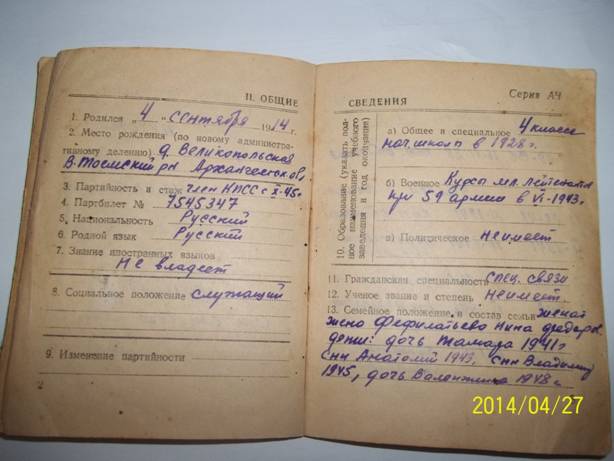 II. ОБЩИЕ
1. Родился „4“ сентября 1914 г.
2. Место рождения (по новому администра-
тивному делению) д. Великопольская
В. Тоемский р-н Архангельской
3. Партийность и стаж член КПСС с X-45 г.
4. Партбилет № 7545347
5. Национальность Русский
6. Родной язык Русский
7. Знание иностранных языков
Не владеет
8. Социальное положение служащий
9. Изменение партийности
СВЕДЕНИЯ
Серия АЧ
10. Образование (указать пол-
ное наименование учебного
заведения и год окончания)
а) Общее и специальное 4 класса
нач. школы в 1928 г.
б) Военное Курсы мл. лейтенантов
при 59 армии в VI-1943 г.
в) Политическое не имеет
11. Гражданская специальность спец. связи
12. Ученое звание и степень не имеет.
13. Семейное положение и состав семьи женат
жена Нина
дети: дочь Тамара 1941 г
сын Анатолий 1943, сын Владимир
1945, дочь Валентина 1948 г.
2014/04/27